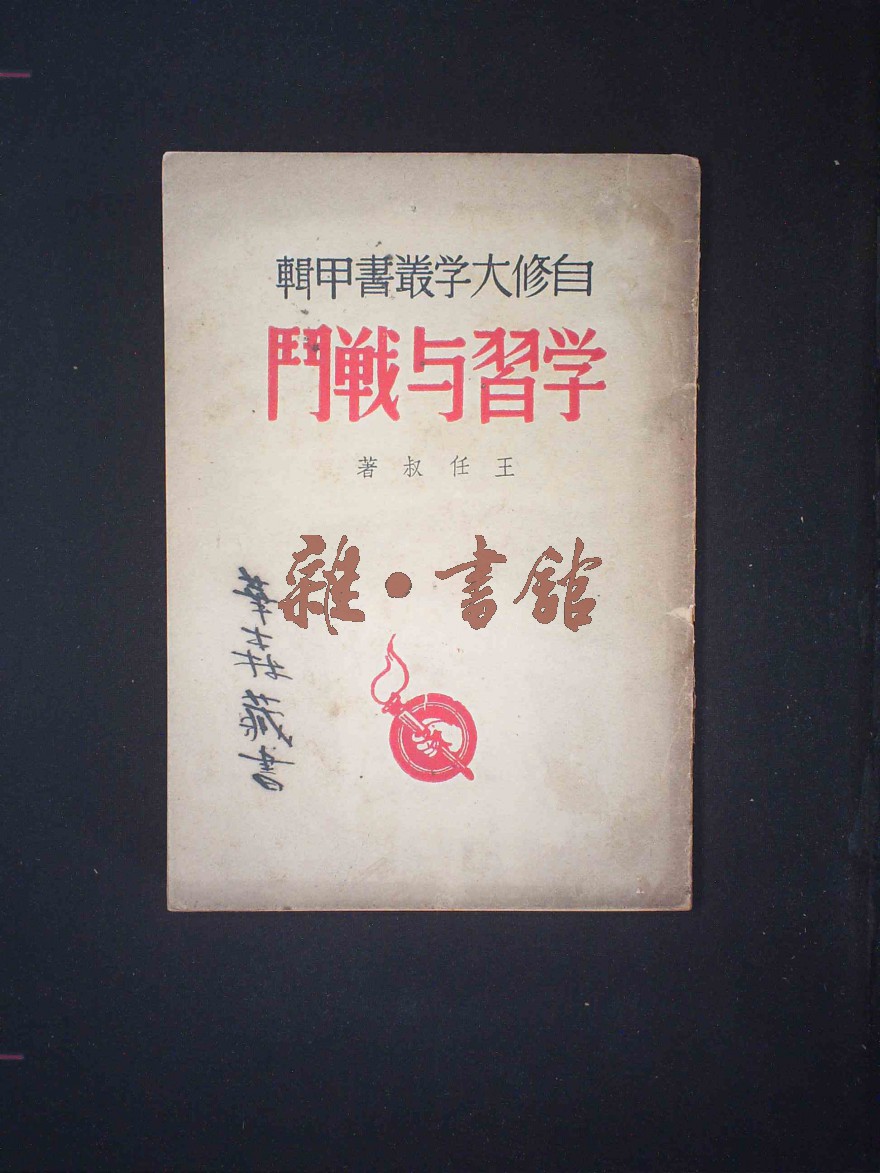 自修大学叢書甲輯
学習与戦鬥
王任叔著
雜•書館